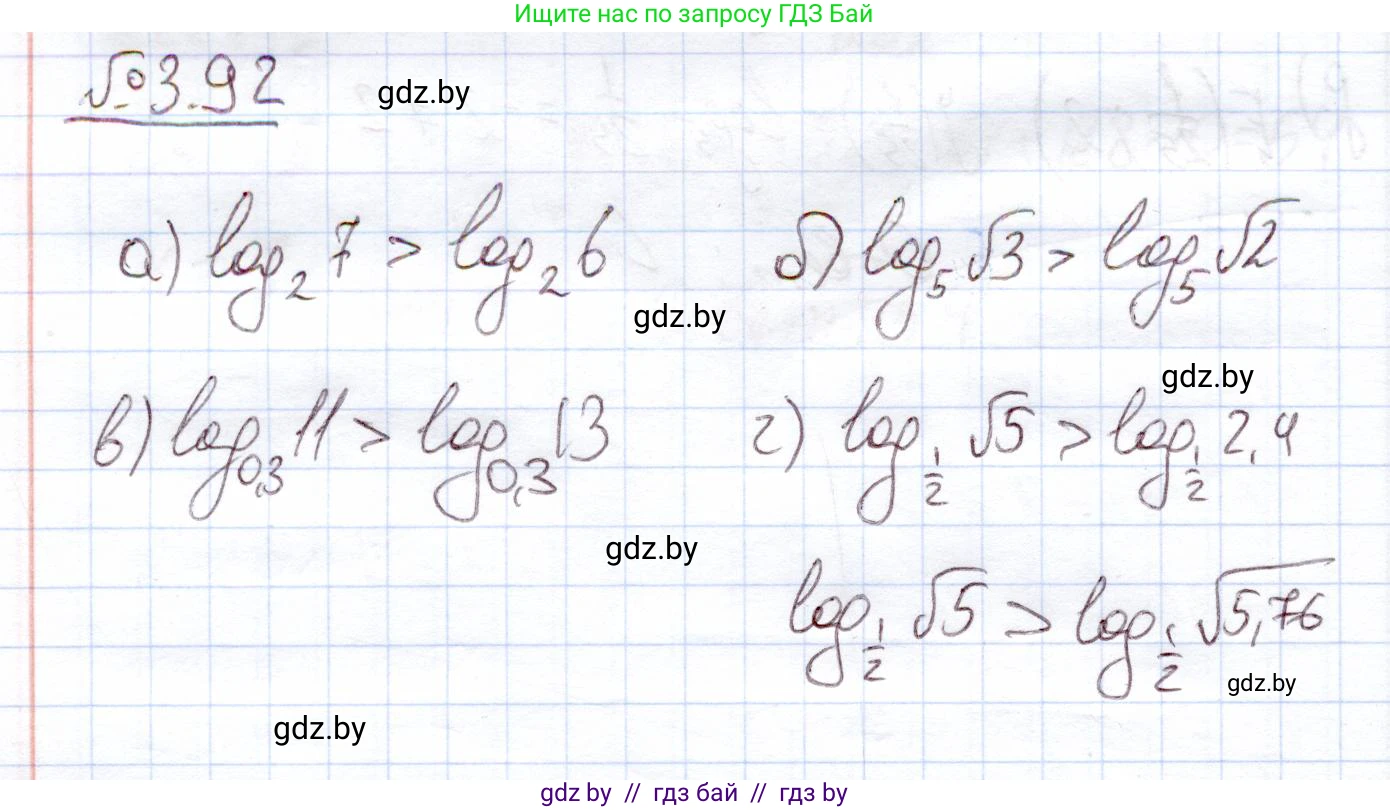 Ищите нас по запросу ГДЗ Бай
№ 3.92
gdz.by
а) log₂ 7 > log₂ 6 б) log₅ √3 > log₅ √2
gdz.by
gdz.by
в) log₀,₃ 11 > log₀,₃ 13 г) log_{1/2} √5 > log_{1/2} 2,4
gdz.by
log_{1/2} √5 > log_{1/2} √5,76
gdz.by
gdz.by
gdz by // гдз бай // гдз by